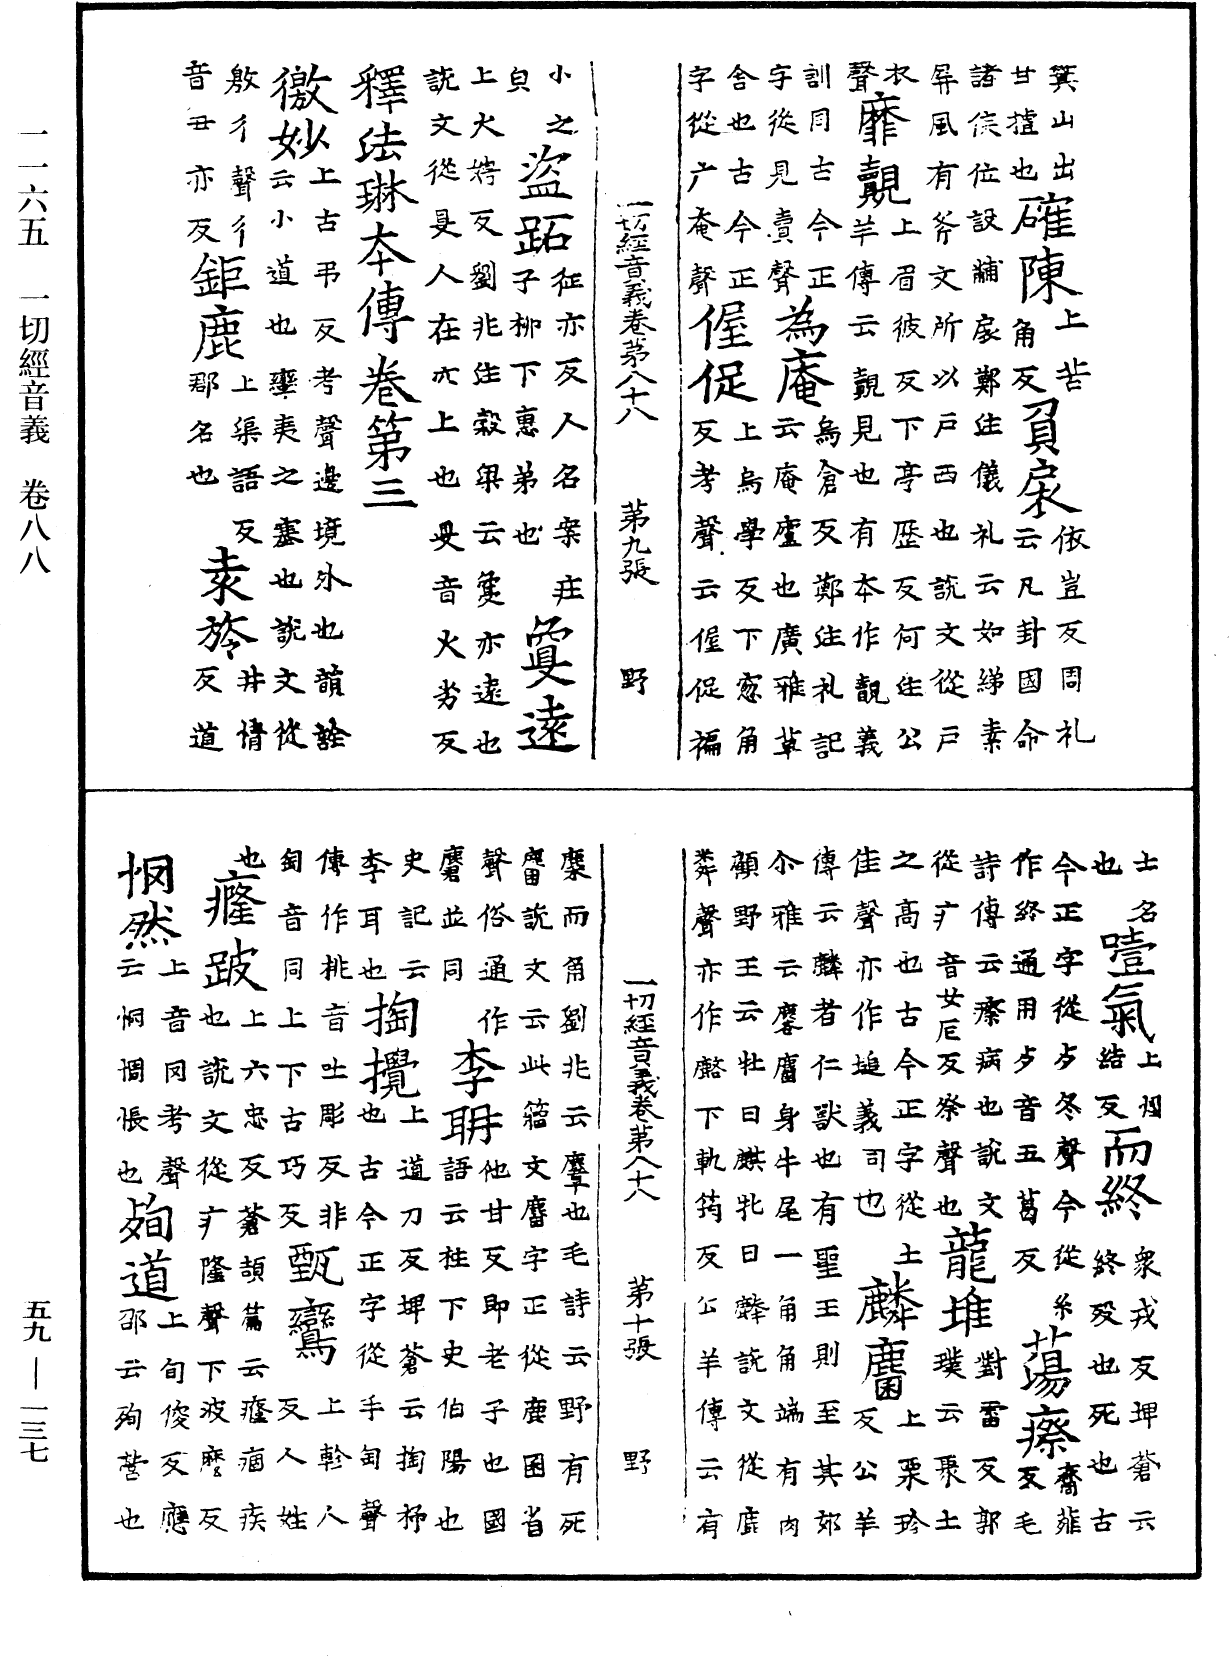 一一六五　一切經音義　卷八八
五九—一三七
箕山出確陳上苦
甘㯫也角反負扆依豈反周礼
諸侯位設黼扆鄭注儀礼云如綈素
屏風有斧文所以戶西也說文從戶
衣上眉彼反下亭歷反何注公
聲靡覿羊傳云覿見也有本作覩義
訓同古今正烏倉反鄭注礼記
字從見賣聲為庵云庵廬也廣雅草
舍也古今正上烏學反下窓角
字從广奄聲偓促反考聲云偓促褊
一切經音義卷第八十八　第九張　野
小之征亦反人名案莊
皃盜跖子柳下惠弟也夐遠
上火娉反劉兆注穀梁云夐亦遠也
說文從旻人在穴上也旻音火劣反
釋法琳本傳卷第三
徼妙上古弔反考聲邊境外也韻詮
云小道也蠻夷之塞也說文從
敫彳聲彳上渠語反井情
音丑亦反鉅鹿郡名也袁旍反道
士名上烟衆戎反埤蒼云
也噎氣結反而終終歿也死也古
今正字從歺冬聲今從糸齋薤
作終通用歺音五葛反蕩瘵反毛
詩傳云瘵病也說文對雷反郭
從疒音女厄反祭聲也龍堆璞云聚土
之高也古今正字從土上栗珍
隹聲亦作塠義司也麟麕反公羊
傳云麟者仁獸也有聖王則至其郊
尒雅云麐麕身牛尾一角角端有肉
顧野王云牡曰麒牝曰麟說文從鹿
粦聲亦作麐下軌筠反公羊傳云有
一切經音義卷第八十八　第十張　野
麇而角劉兆云麞也毛詩云野有死
麕說文云此籀文麕字正從鹿囷省
聲俗通作他甘反即老子也國
麏並同李聃語云柱下史伯陽也
史記云上道刀反埤蒼云掏抒
李耳也掏攪也古今正字從手匋聲
傳作桃音吐彫反非上軫人
匋音同上下古巧反甄鸞反人姓
也上六忠反蒼頡篇云癃痼疾
癃跛也說文從疒隆聲下波麼反
上音罔考聲上旬俊反應
惘然云惘惆悵也殉道邵云殉營也